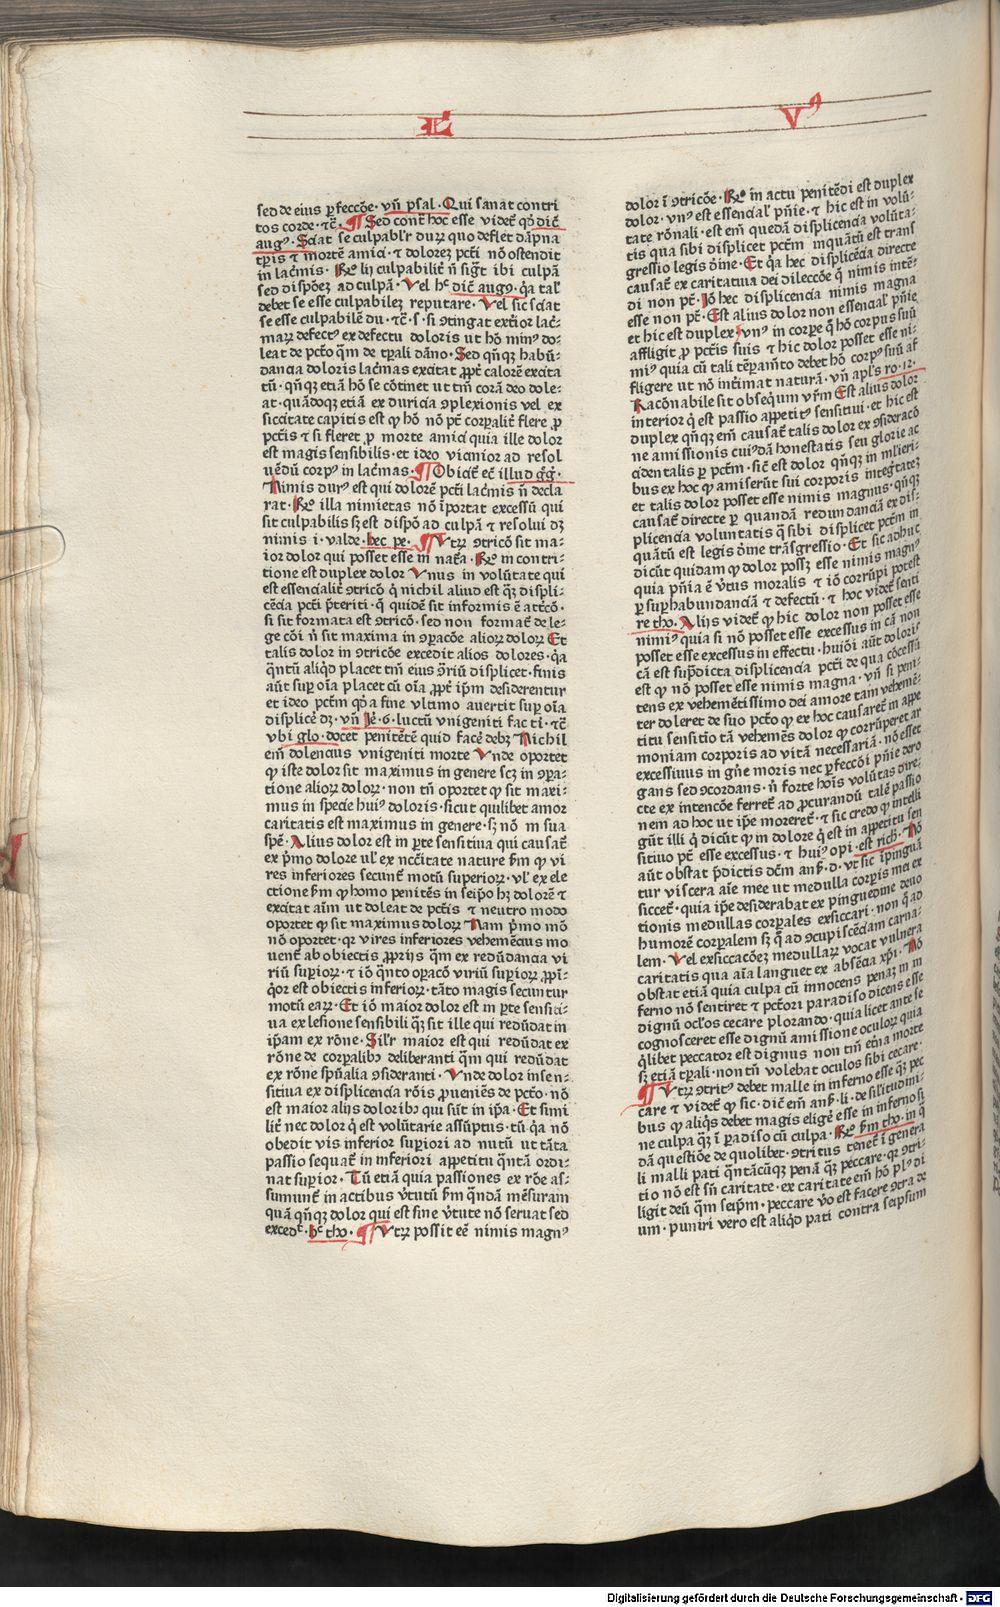 L Vꝰ
sed de eius ꝑfeccõe · vñ psal · Qui sanat contri
tos corde · ⁊c̃ · ¶ Sed cont̃ hoc esse videt᷑ qd̕ dic̃
augꝰ · Sciat se culpabl'r duꝝ quo deflet dãpna
tp̃is ⁊ mortẽ amici · ⁊ dolorez pcti nõ ostendit
in lac̃mis · Rñ° lij culpabilit̃ ñ sigt̃ ibi culpã
sed dispõez ad culpã · Vel hͨ dic̃ augꝰ · q̕a tal'
debet se esse culpabilez reputare · Vel sic sciat
se esse culpabilẽ du · ⁊c̃ · s · si ꝯtingat ext̃ior lac̃⸗
maꝝ defectꝰ ex defectu doloris ut hõ minꝰ do⸗
leat de pctõ q̃m de tp̃rali dãno · Sed qñqꝫ habũ⸗
dancia doloris lac̃mas excitat ꝓpt̃ calorẽ excita
tũ · qñqꝫ etiã hõ se cõtinet ut tm̃ corã deo dole⸗
at · quãdoqꝫ etiã ex duricia ꝯplexionis vel ex
siccitate capitis est ꝙ hõ nõ pt̃ corꝑalit̃ flere ꝓ
pctĩs ⁊ si fleret ꝓ morte amici quia ille dolor
est magis sensibilis · et ideo vicinior ad resol
uẽdũ corpꝰ in lac̃mas · ¶ Obicit᷑ eč illud gg̃ ·
Nimis durꝰ est qui dolorẽ pcti lac̃mis ñ decla
rat · Rñ° illa nimietas nõ ĩportat excessũ qui
sit culpabilis sꝫ est dispõ ad culpã ⁊ resolui dꝫ
nimis i · valde · hec pe · ¶ Vtꝝ ꝯtricõ sit ma⸗
ior dolor qui posset esse in nat̃a · Rñ° in contri⸗
tione est duplex dolor Vnus in volũtate qui
est essencialit̃ ꝯtricõ q̕ nichil aliud est q̃ꝫ displi⸗
cẽcia pcti p̃teriti · q̃ quidẽ sit informis ẽ att̃cõ ·
si sit formata est ꝯtricõ · sed non format̃ de le⸗
ge cõi ñ sit maxima in ꝯꝑacõe alioꝝ doloꝝ Et
talis dolor in ꝯtricõe excedit alios dolores · q̕a
q̃ntũ aliq̕d placet tm̃ eius ꝯ̃riũ displicet · finis
aũt suꝑ oĩa placet cũ oĩa ꝓpt̃ ip̃m desiderentur
et ideo pctm̃ qd̕ a fine vltimo auertit suꝑ oĩa
displic̃e dꝫ · vñ Ie̾ · 6 · luctũ vnigeniti fac ti · ⁊c̃
vbi glo · docet penitẽtẽ quid fac̃e debꝫ Nichil
em̃ dolencius vnigeniti morte Vnde oportet
ꝙ iste dolor sit maximus in genere scꝫ in ꝯꝑa⸗
tione alioꝝ doloꝝ · non tñ oportet ꝙ sit maxi⸗
mus in specie huiꝰ doloris · sicut quilibet amor
caritatis est maximus in genere · sꝫ nõ in sua
spẽ · Alius dolor est in ꝑte sensitiua qui causat᷑
ex p̃mo dolore ul' ex nc̃citate nature ẜm ꝙ vi
res inferiores secunt᷑ motũ superioꝝ · vl' ex ele
ctione ẜm ꝙ homo penitẽs in seip̃o hꝫ dolorẽ ⁊
excitat aĩm ut doleat de pctĩs ⁊ neutro modo
oportet ꝙ sit maximus doloꝝ Nam p̃mo mõ
nõ oportet · qꝛ vires inferiores vehemẽcius mo
uent᷑ ab obiectis ꝓprijs q̃m ex redũdancia vi
riũ suꝑioꝝ · ⁊ iõ q̃nto oꝑacõ viriũ suꝑioꝝ ꝓpĩ⸗
q̕or est obiectis inferioꝝ · tãto magis secuntur
motũ eaꝝ · Et iõ maior dolor est in ꝑte sensiti⸗
ua ex lesione sensibili q̃ꝫ sit ille qui redũdat in
ip̃am ex rõne · Sil'r maior est qui redũdat ex
rõne de corꝑalibꝰ deliberanti q̃m qui redũdat
ex rõne spũalia ꝯsideranti · Vnde dolor in sen⸗
sitiua ex displicencia rõis ꝓueniẽs de pctõ · nõ
est maior alijs doloribꝰ qui sũt in ip̃a · Et simi
lit̃ nec dolor q̕ est volũtarie assũptus · tũ q̕a nõ
obedit vis inferior suꝑiori ad nutũ ut tãta
passio sequat᷑ in inferiori appetitu q̃ntã ordi⸗
nat suꝑior · Tũ etiã quia passiones ex rõe as⸗
sumunt᷑ in actibus v̾tutũ ẜm q̃ndã mẽsuram
quã qñqꝫ dolor qui est sine v̾tute nõ seruat sed
excedꝰ · hͨ tho · ¶ Vtꝝ possit eẽ nimis magnꝰ
dolor ĩ ꝯtricõe · Rñ° in actu penitẽdi est duplex
dolor · vnꝰ est essencial' pñie · ⁊ hic est in volũ⸗
tate rõnali · est em̃ quedã displicencia volũta⸗
tis qua sibi displicet pctm̃ inquãtũ est trans
gressio legis d̾ine · Et q̕a hec displicẽcia directe
causat᷑ ex caritatiua dei dileccõe q̃ nimis intẽ⸗
di non pt̃ · Iõ hec displicencia nimis magna
esse non pt̃ · Est alius dolor non essencial' pñie
et hic est duplex · vnꝰ in corꝑe q̃ hõ corpus suũ
affligit ꝓ pctĩs suis ⁊ hic dolor posset esse ni⸗
miꝰ quia cũ tali tẽꝑamẽto debet hõ corpꝰ suũ af
fligere ut nõ inĩimat naturã · vñ apl's ro · 12 ·
Racõnabile sit obseqũm vr̃m Est alius dolor
interior q̕ est passio appetitꝰ sensitiui · et hic est
duplex qñqꝫ em̃ causat᷑ talis dolor ex ꝯsideracõ
ne amissionis cuiꝰdã honestatis seu glorie ac
cidentalis per pctm̃ · sic̃ est dolor qñqꝫ in ml'ieri⸗
bus ex hoc ꝙ amiserũt sui corporis integt̃atez
et talis dolor posset esse nimis magnus · qñqꝫ
causat᷑ directe ꝑ quandã redundanciã ex dis⸗
plicencia voluntatis q̃ sibi displicet pctm̃ in
quãtũ est legis d̾ine trãsgressio · Et sic adhuc
dicũt quidam ꝙ dolor possꝫ esse nimis magnꝰ
quia pñia ẽ v̾tus moralis ⁊ iõ corrũpi potest
ꝑ suꝑhabundanciã ⁊ defectũ · ⁊ hoc videt᷑ senti
re tho · Alijs videt᷑ ꝙ hic dolor non posset esse
nimiꝰ quia si nõ posset esse excessus in cã non
posset esse excessus in effectu · huiõi aũt doloris
cã est sup̃dicta displicencia pcti de qua cõcessũ
est ꝙ nõ posset esse nimis magna · vñ si peni⸗
tens ex vehemẽtissimo dei amore tam vehemẽ⸗
ter doleret de suo pctõ ꝙ ex hoc causaret᷑ in appe
titu sensitiõ tã vehemẽs dolor ꝙ corrũperet ar
moniam corporis ad vitã necessariã · nõ esset
excessiuus in gñe moris nec ꝑfeccõi pñie dero
gans sed ꝯcordans · ñ forte hoĩs volũtas dire⸗
cte ex intencõe ferret᷑ ad ꝓcurandũ talẽ passio
nem ad hoc ut ip̃e moreret᷑ · ⁊ sic credo ꝙ intelli
gũt illi q̕ dicũt ꝙ in dolore q̕ est in appetitu sen
sitiuo pt̃ esse excessus · ⁊ huiꝰ opi · est rich̃ · Nõ
aũt obstat p̃dictis dc̃m anẜ · d · vt sic ĩpingua
tur viscera aĩe mee ut medulla corꝑis mei ex
siccet᷑ · quia ip̃e desiderabat ex pinguedine deuo
tionis medullas corꝑales exsiccari · non q̃ ad
humorẽ corꝑalem sꝫ q̃ ad ꝯcupiscẽciam carna⸗
lem · Vel exsiccacõez medullaꝝ vocat vulnera
caritatis qua aĩa languet ex absẽcia xp̃i · Nõ
obstat etiã quia culpa cũ innocens penaꝫ in in
ferno nõ sentiret ⁊ pctõri paradiso dicens esse
dignũ ocl'os cecare plorando · quia licet ante se
cognosceret esse dignũ amissione oculoꝝ quia
q̕libet peccator est dignus non tm̃ et̾na morte
sꝫ etiã tp̃rali · non tñ volebat oculos sibi cecare ·
¶ Vtꝝ ꝯtritꝰ debet malle in inferno esse q̃ꝫ pec
care ⁊ videt᷑ ꝙ sic · dic̃ em̃ anẜ · li · de sil'itudini⸗
bus ꝙ aliq̕s debet magis elige̾ esse in inferno si
ne culpa q̃ꝫ ĩ ꝑadiso cũ culpa · Rñ° ẜm tho · in q̕
dã questiõe de quolibet · ꝯtritus tenet᷑ ĩ genera
li malli pati q̃ntãcũqꝫ penã q̃ꝫ peccare · qꝛ ꝯtri⸗
tio nõ est sñ caritate · ex caritate em̃ hõ plꝰ di
ligit deũ q̃m seip̃m · peccare v̾o est facere ꝯtra de
um · puniri vero est aliq̕d pati contra seipsum
Digitalisierung gefördert durch die Deutsche Forschungsgemeinschaft · DFG